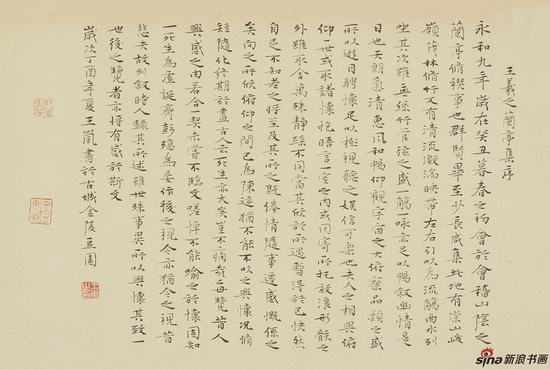 王羲之蘭亭集序
永和九年歲在癸丑暮春之初會於會稽山陰之
蘭亭脩禊事也群賢畢至少長咸集此地有崇山峻
嶺茂林脩竹又有清流激湍映帶左右引以為流觴曲水列
坐其次雖無絲竹管弦之盛一觴一詠亦足以暢敘幽情是
日也天朗氣清惠風和暢仰觀宇宙之大俯察品類之盛
所以遊目騁懷足以極視聽之娛信可樂也夫人之相與俯
仰一世或取諸懷抱晤言一室之內或因寄所托放浪形骸之
外雖取舍萬殊靜躁不同當其欣於所遇暫得於己快然
自足不知老之將至及其所之既倦情隨事遷感慨係之
矣向之所欣俯仰之間已為陳迹猶不能不以之興懷況脩
短隨化終期於盡古人云死生亦大矣豈不痛哉每覽昔人
興感之由若合一契未嘗不臨文嗟悼不能喻之於懷固知
一死生為虛誕齊彭殤為妄作後之視今亦猶今之視昔
悲夫故列敘時人錄其所述雖世殊事異所以興懷其致一
也後之覽者亦將有感於斯文
歲次丁酉年夏王嵐書於古城金陵豆園
sina新浪书画